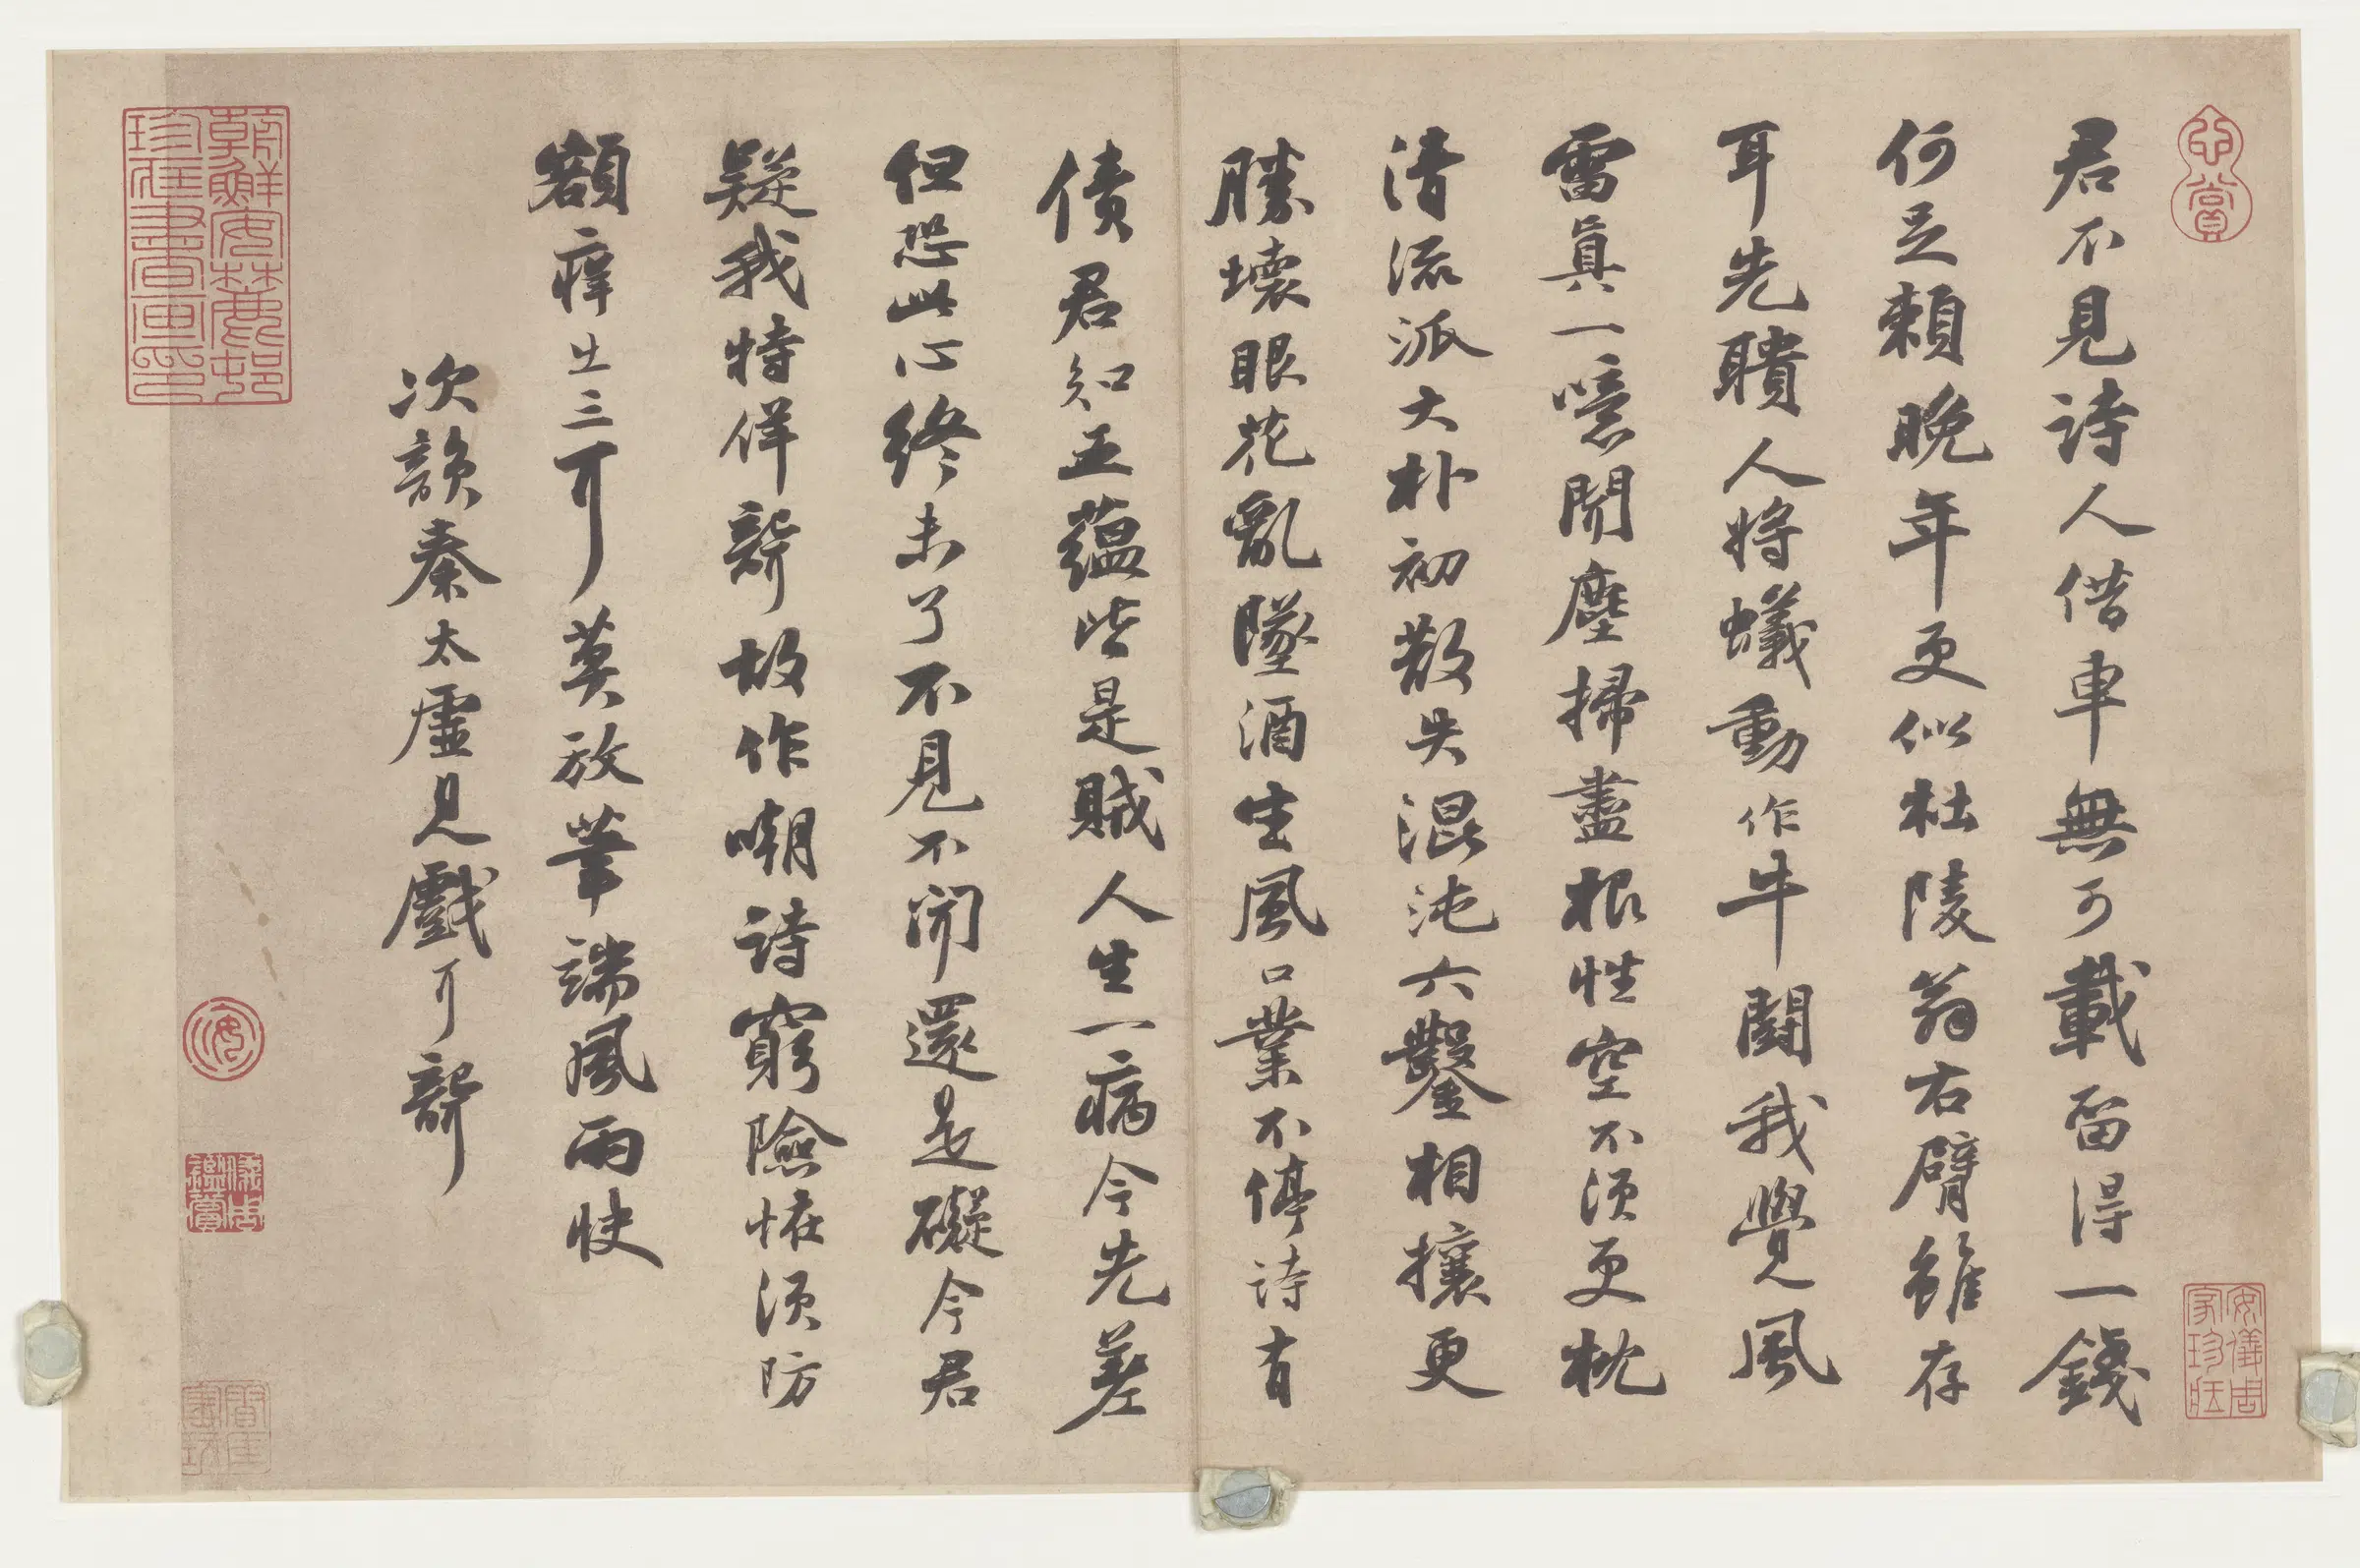 心賞
安儀周家珍藏
君不見詩人借車無可載留得一錢
何足賴晚年更似杜陵翁右臂雖存
耳先聵人將蟻動作牛鬪我覺風
雷真一噫聞塵掃盡根性空不須更枕
清流派大朴初散失混沌六鑿相攘更
勝壞眼花亂墜酒生風口業不停詩有
債君知五蘊皆是賊人生一病今先差
但恐此心終未了不見不聞還是礙今君
疑我特佯聾故作嘲詩窮險怪須防
額痒出三耳莫放筆端風雨快
次韻秦太虛見戲耳聾
朝鮮安麓邨珍藏書畫印
安
儀周鑑賞